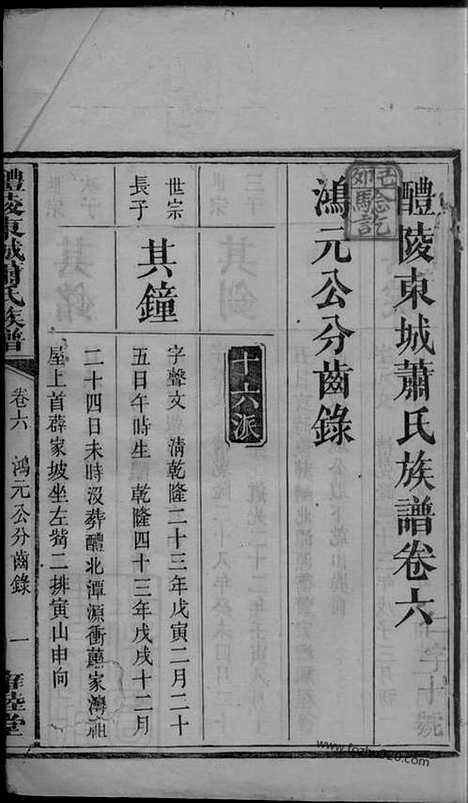 醴陵東城蕭氏族譜卷六
鴻元公分齒錄
十六派
世宗
長子
其鐘
字聲文 清乾隆二十三年戊寅二月二十
五日午時生 乾隆四十三年戊戌十二月
二十四日未時沒葬醴北潭源衝蕙家灣祖
屋上首薛家坡坐左嘴二排寅山申向
醴陵東城蕭氏族譜
卷六 鴻元公分齒錄 一